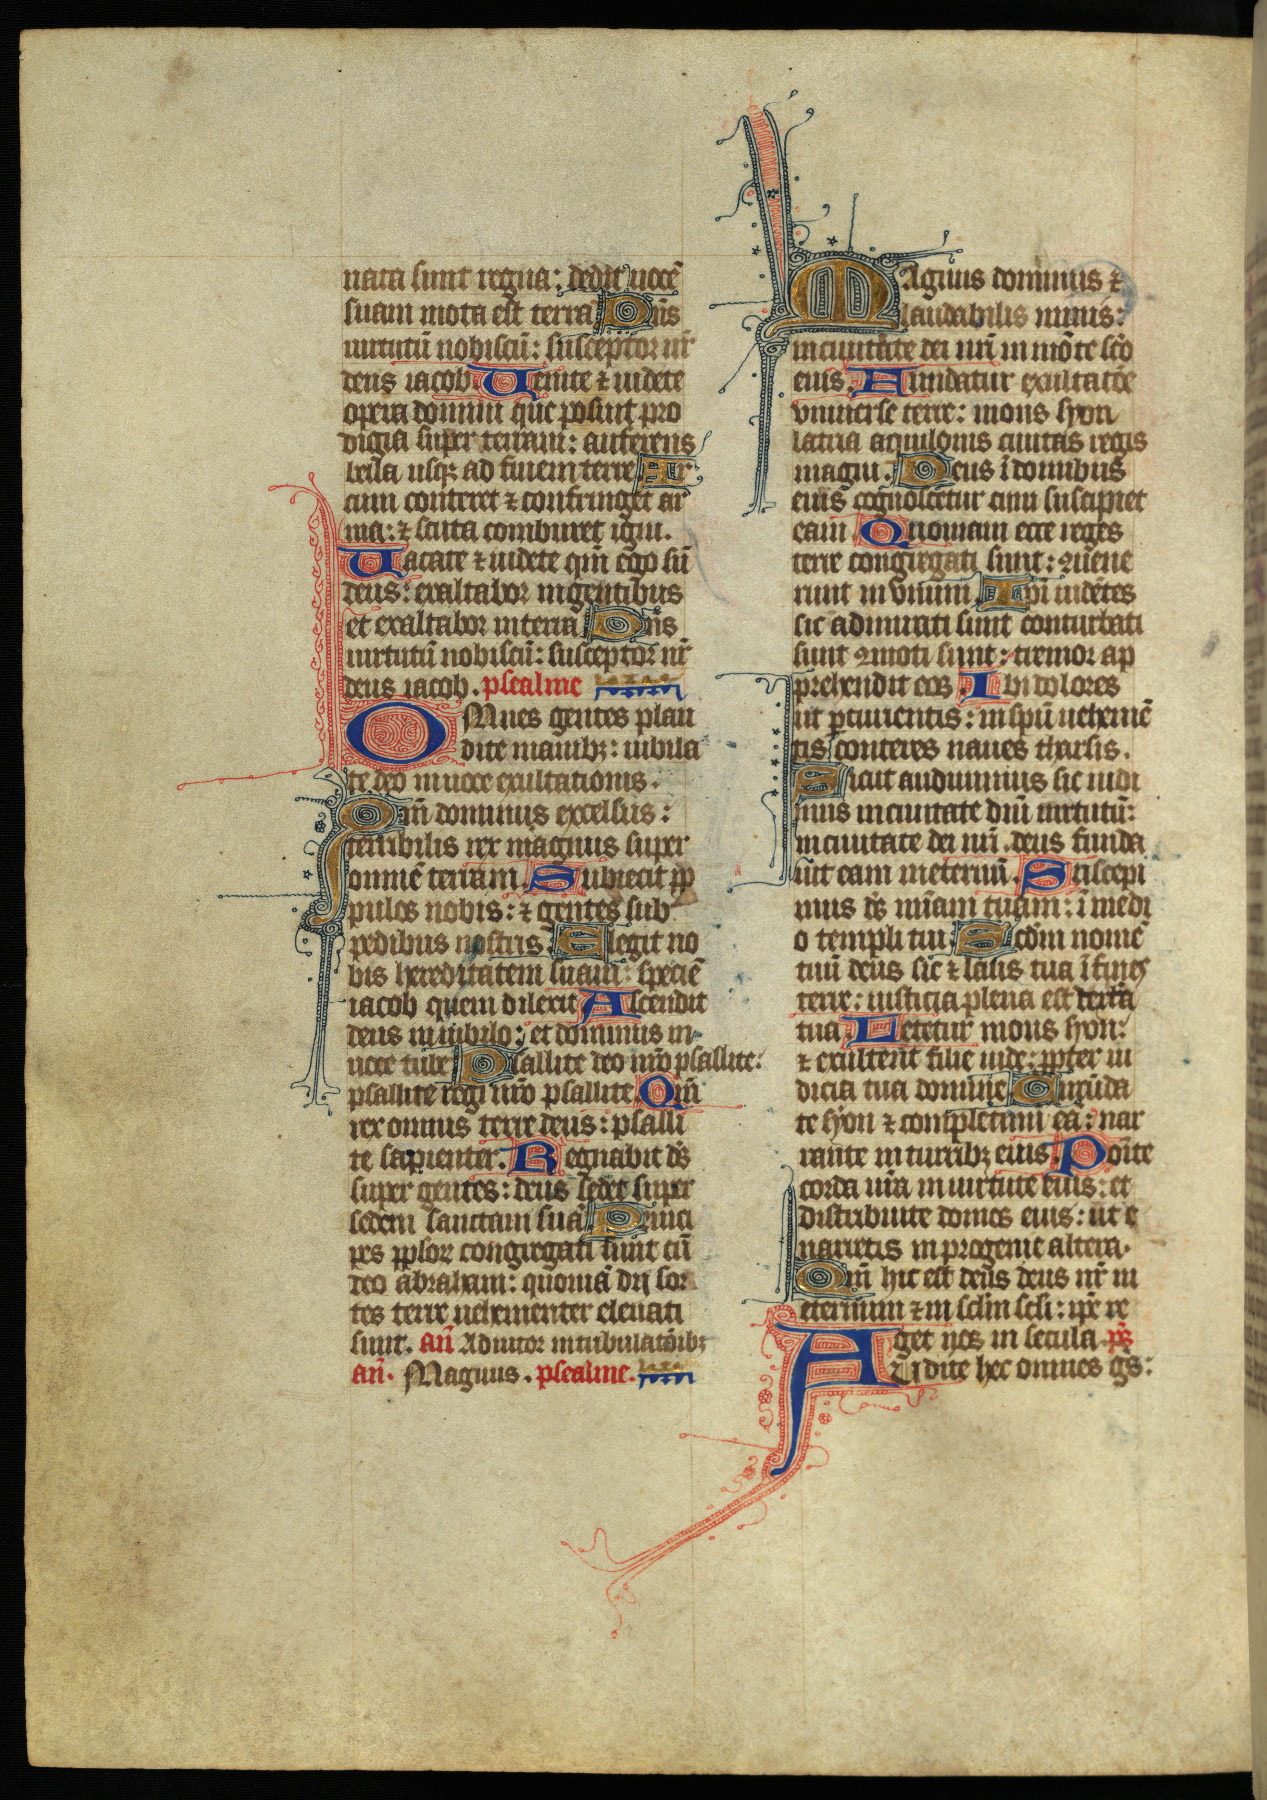 nata sunt regna: dedit uocē
suam mota est terra Dn̄s
uirtutū nobiscū: susceptor nr̄
deus iacob. Uenite ⁊ uidete
opera domini que posuit pro
digia super terram: auferens
bella usqꝫ ad finem terre Ar
cum conteret ⁊ confringet ar
ma: ⁊ scuta comburet igni.
Uacate ⁊ uidete qm̄ ego sū
deus: exaltabor in gentibus
et exaltabor in terra Dn̄s
uirtutū nobiscū: susceptor nr̄
deus iacob. psealme
OMnes gentes plau
dite manibꝫ: iubila
te deo in uoce exultationis.
Qm̄ dominus excelsus:
terribilis rex magnus super
omnē terram. Subiecit pp̄
pulos nobis: ⁊ gentes sub
pedibus nostris. Elegit no
bis hereditatem suam: speciē
iacob quem dilexit Ascendit
deus in iubilo: et dominus in
uoce tube Psallite deo nr̄o psallite:
psallite regi nr̄o psallite. Qm̄
rex omnis terre deus: psalli
te sapienter. Regnabit ds̄
super gentes: deus sedet super
sedem sanctam suā Princi
pes pp̄loꝝ congregati sunt cū
deo abraham: quoniā dij for
tes terre uehementer eleuati
sunt. an̄ Adiutor in tribulatōibꝫ
an̄. Magnus. psealme.
MAgnus dominus ⁊
laudabilis nimis:
in ciuitate dei nr̄i in mōte sc̄o
eius. Fundatur exultatiōe
vniuerse terre: mons syon
latera aquilonis ciuitas regis
magni. Deus ī domibus
eius cognoscetur cum suscipiet
eam Quoniam ecce reges
terre congregati sunt: ꝯuene
runt in vnum Ipī uidētes
sic admirati sunt conturbati
sunt ꝯmoti sunt: tremor ap
prehendit eos Ibi dolores
ut ꝑturientis: in spū uehemē
tis conteres naues tharsis.
Sicut audiuimus sic uidi
mus in ciuitate dn̄i uirtutū:
in ciuitate dei nr̄i. deus funda
uit eam in eternū. Suscepi
mus ds̄ mīam tuam: ī medi
o templi tui. Scdm̄ nomē
tuū deus sic ⁊ laus tua ī fines
terre: iusticia plena est dextera
tua Letetur mons syon:
⁊ exultent filie iude: ꝓpter iu
dicia tua domine Circūda
te syon ⁊ complectimi eā: nar
rante in turribꝫ eius. Pōite
corda ur̄a in uirtute eius: et
distribuite domos eius: ut e
narretis in progenie altera.
Qm̄ hic est deus deus nr̄ in
eternum ⁊ in sclm̄ scli: ip̄e re
get nos in secula ps̄
AUdite hec omnes gs̄: